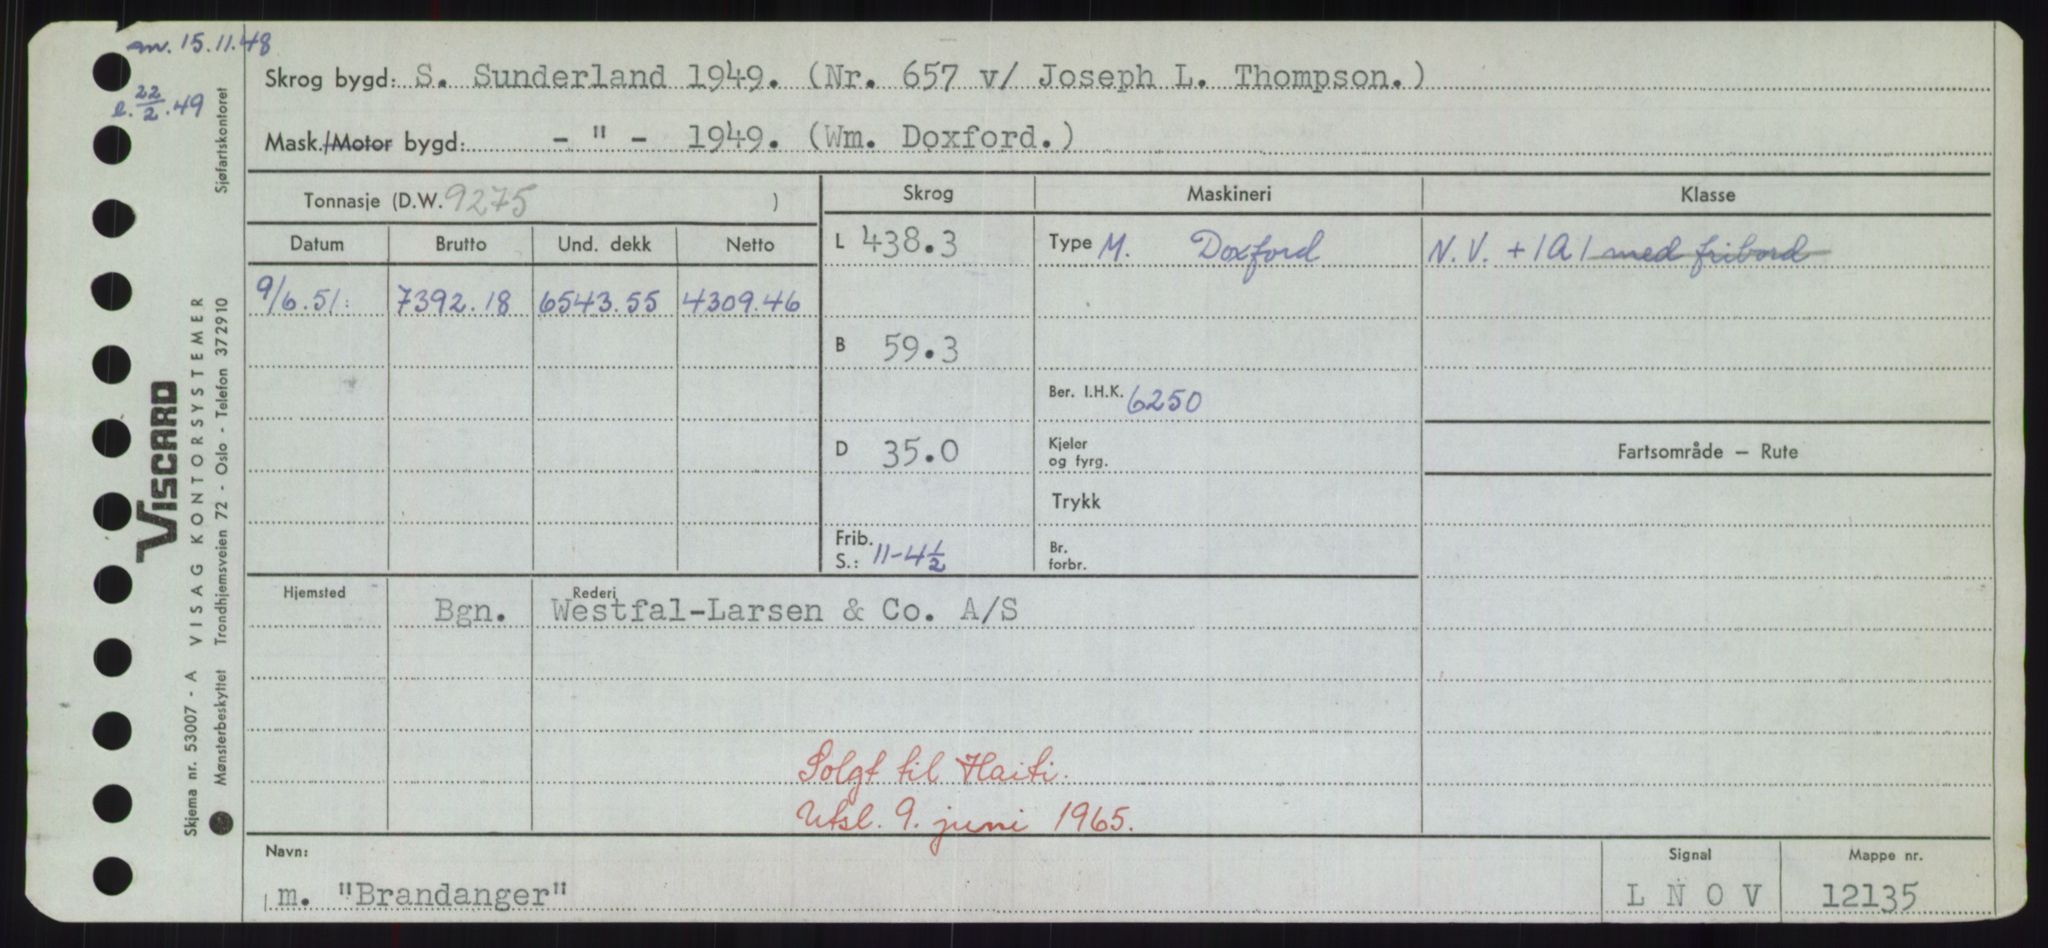 m. 15.11.48
l. 22/2.49
Skrog bygd: S. Sunderland 1949. (Nr. 657 v/ Joseph L. Thompson.)
Mask./Motor bygd: - " - 1949. (Wm. Doxford.)
Sjøfartskontoret
Tonnasje (D.W. 9275 )
Skrog
Maskineri
Klasse
Datum Brutto Und. dekk Netto
L 438.3
Type M. Doxford
N.V. +1A1 med fribord
9/6.51: 7392.18 6543.55 4309.46
B 59.3
Ber. I.H.K. 6250
D 35.0
Kjeler
og fyrg.
Fartsområde — Rute
Trykk
Frib.
S.: 11-4½
Br.
forbr.
Hjemsted Bgn.
Rederi
Westfal-Larsen & Co. A/S
Solgt til Haiti.
Utsl. 9. juni 1965.
Navn:
m. "Brandanger"
Signal
L N O V
Mappe nr.
12135
VISCARD
Skjema nr. 53007 - A VISAG KONTORSYSTEMER
Mønsterbeskyttet Trondhjemsveien 72 - Oslo - Telefon 372910